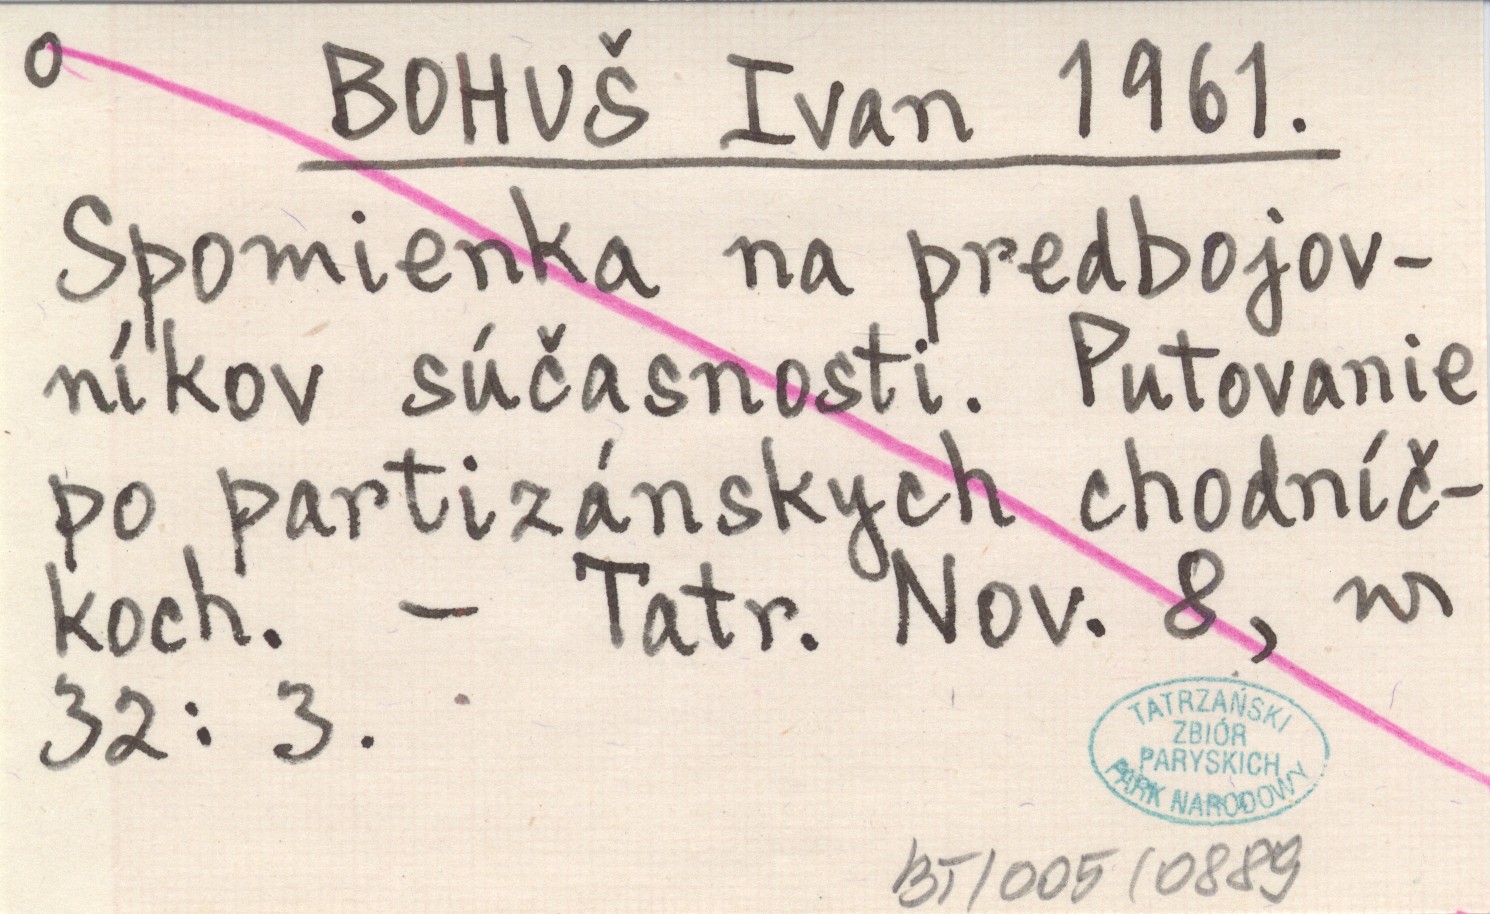 o BOHUŠ Ivan 1961.
Spomienka na predbojov-
níkov súčasnosti. Putovanie
po partizánskych chodníč-
koch. - Tatr. Nov. 8, nr
32: 3.
TATRZAŃSKI
ZBIÓR
PARYSKICH
PARK NARODOWY
BT/005/0889